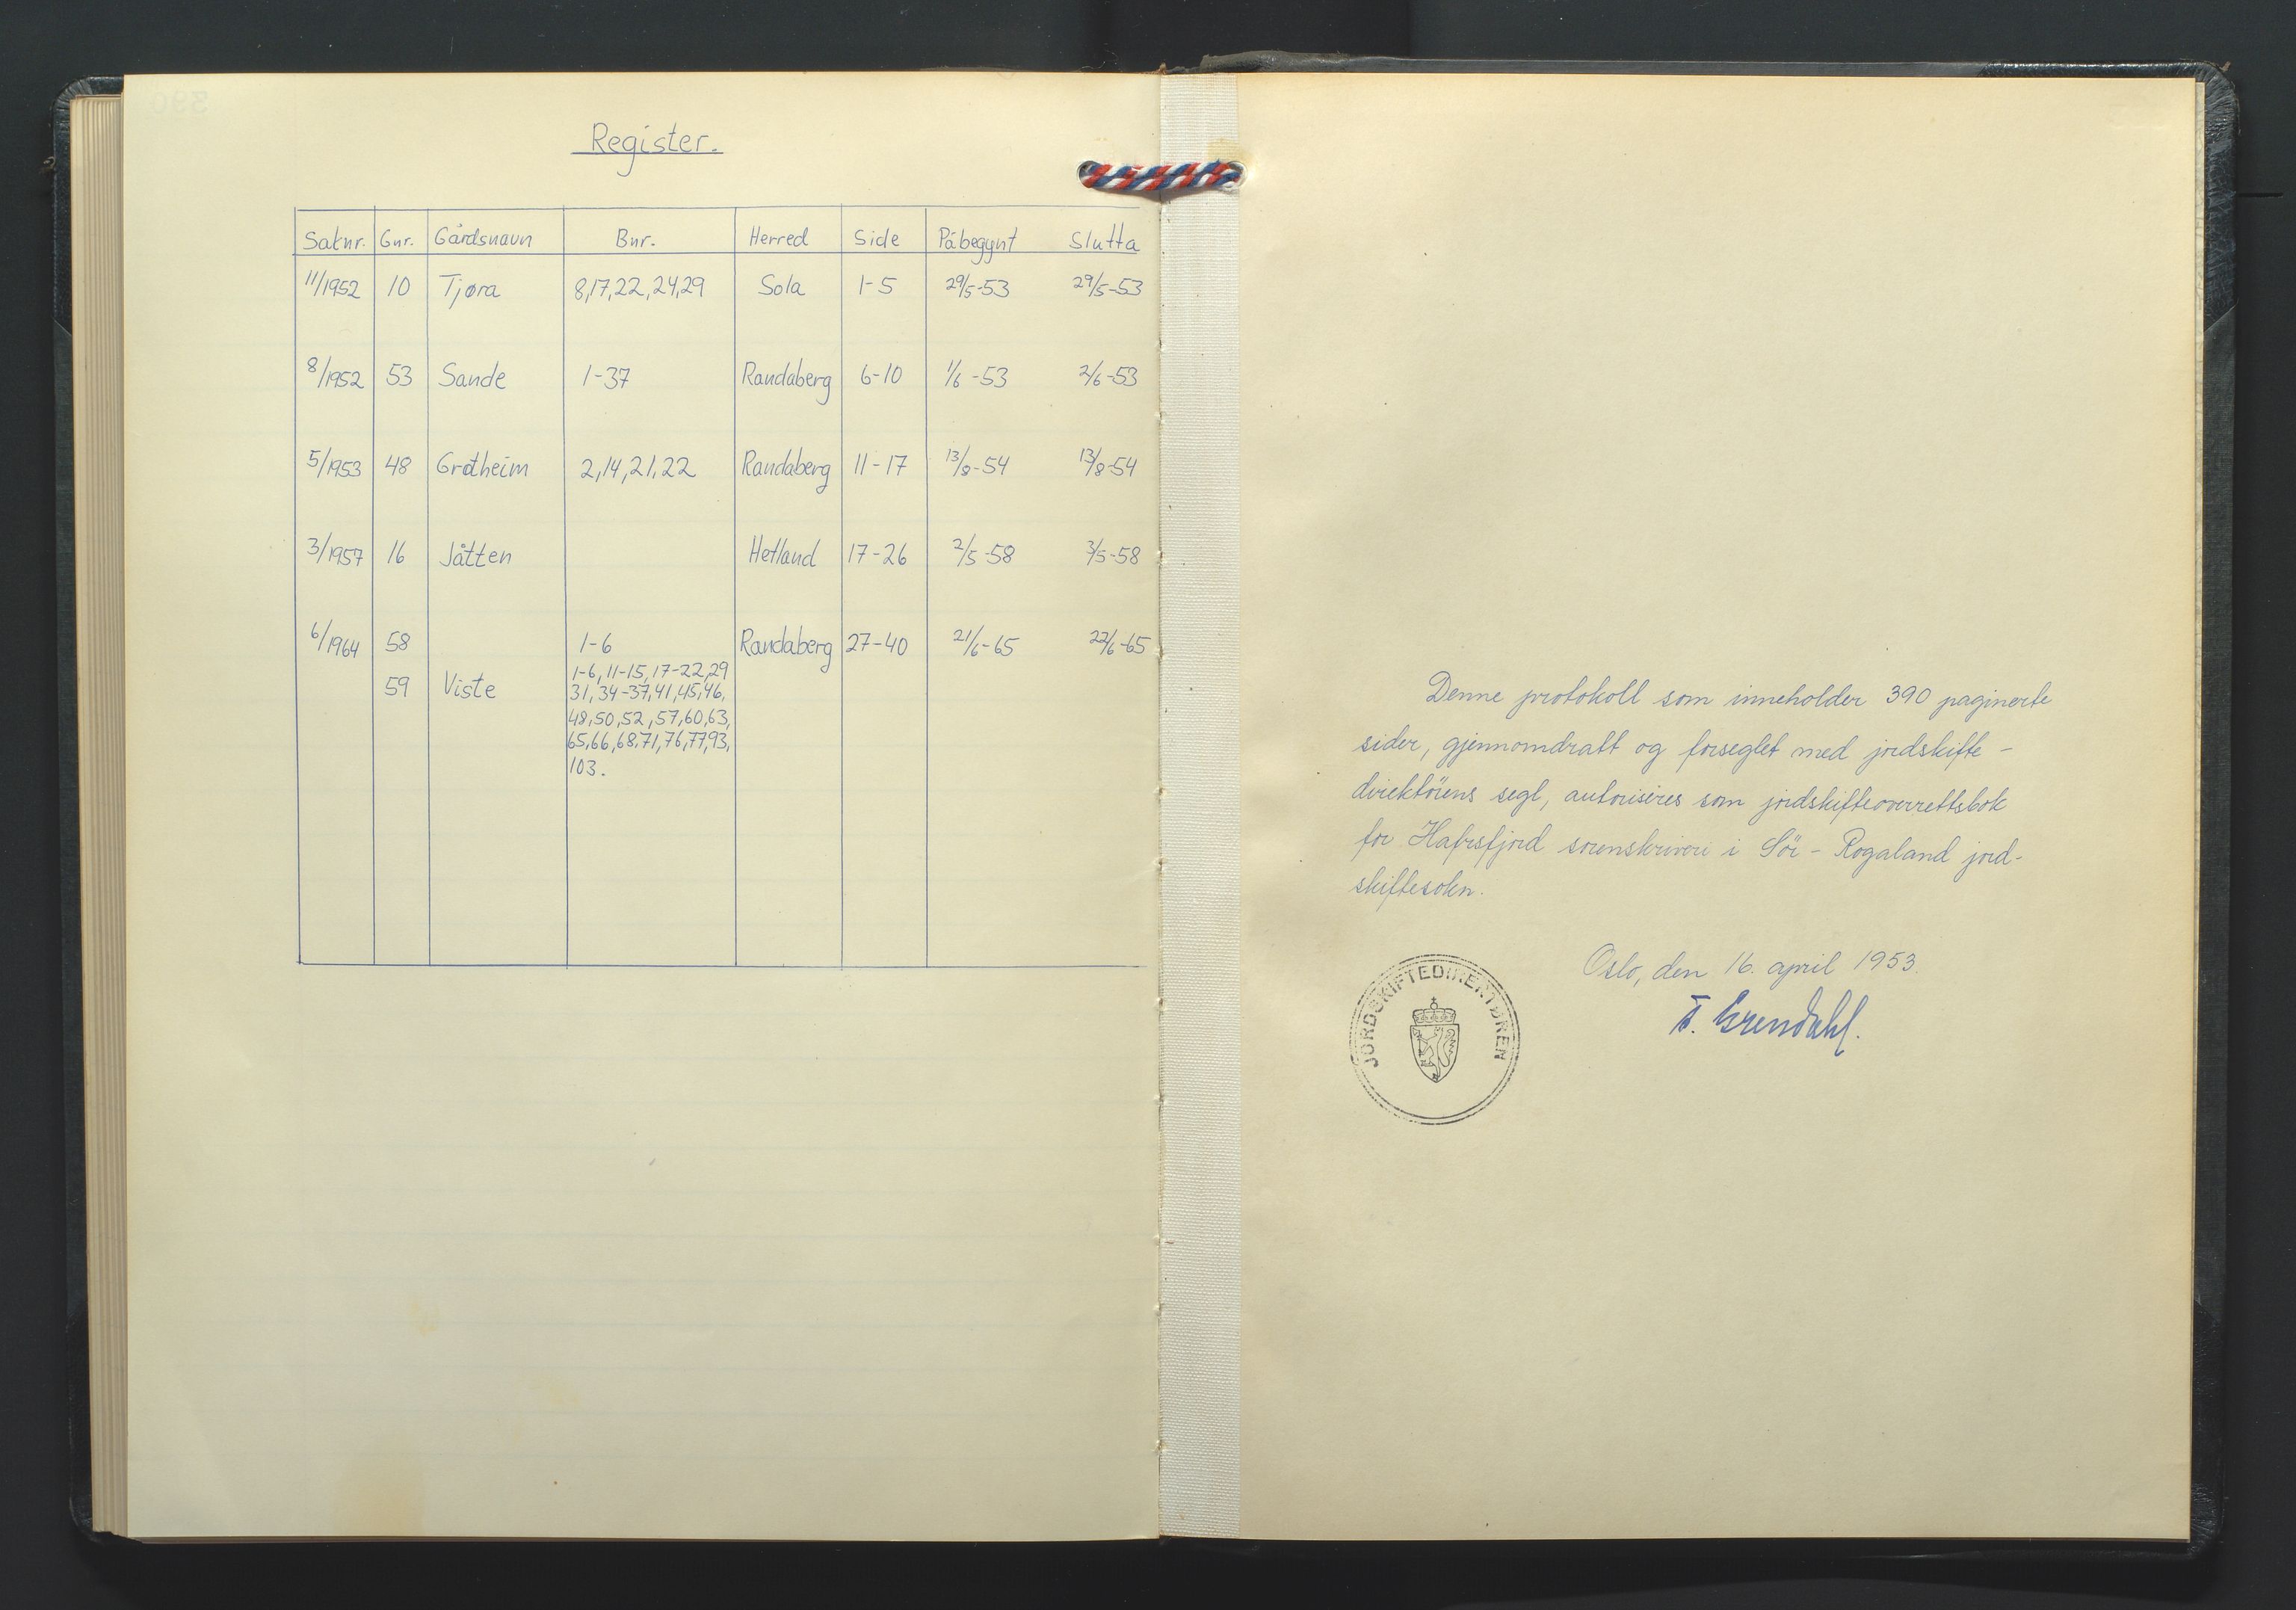 Register.
Saknr. Gnr. Gårdsnavn Bnr. Herred Side Påbegynt Slutta
11/1952 10 Tjøra 8,17,22,24,29 Sola 1-5 29/5-53 29/5-53
8/1952 53 Sande 1-37 Randaberg 6-10 1/6-53 2/6-53
5/1953 48 Grøtheim 2,14,21,22 Randaberg 11-17 13/8-54 13/8-54
3/1957 16 Jåtten Hetland 17-26 2/5-58 3/5-58
6/1964 58 1-6 Randaberg 27-40 21/6-65 22/6-65
1-6,11-15,17-22,29
59 Viste 31,34-37,41,45,46,
48,50,52,57,60,63,
65,66,68,71,76,77,93,
103.
Denne protokoll som inneholder 390 paginerte
sider, gjennomdratt og forseglet med jordskifte-
direktörens segl, autoriseres som jordskifteoverrettsbok
for Hafrsfjord sorenskriveri i Sör-Rogaland jord-
skiftesokn.
Oslo, den 16. april 1953.
T. Grendahl.
JORDSKIFTEDIREKTØREN